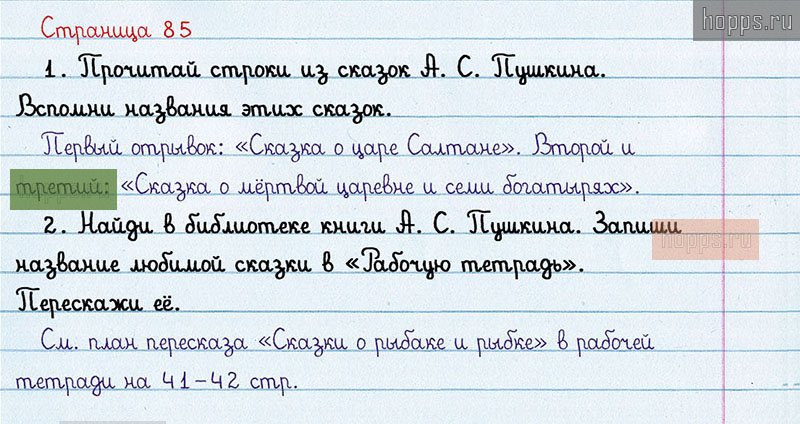 hopps.ru
Страница 85
1. Прочитай строки из сказок А. С. Пушкина.
Вспомни названия этих сказок.
Первый отрывок: «Сказка о царе Салтане». Второй и
третий: «Сказка о мёртвой царевне и семи богатырях».
2. Найди в библиотеке книги А. С. Пушкина. Запиши
hopps.ru
название любимой сказки в «Рабочую тетрадь».
Перескажи её.
См. план пересказа «Сказки о рыбаке и рыбке» в рабочей
тетради на 41-42 стр.